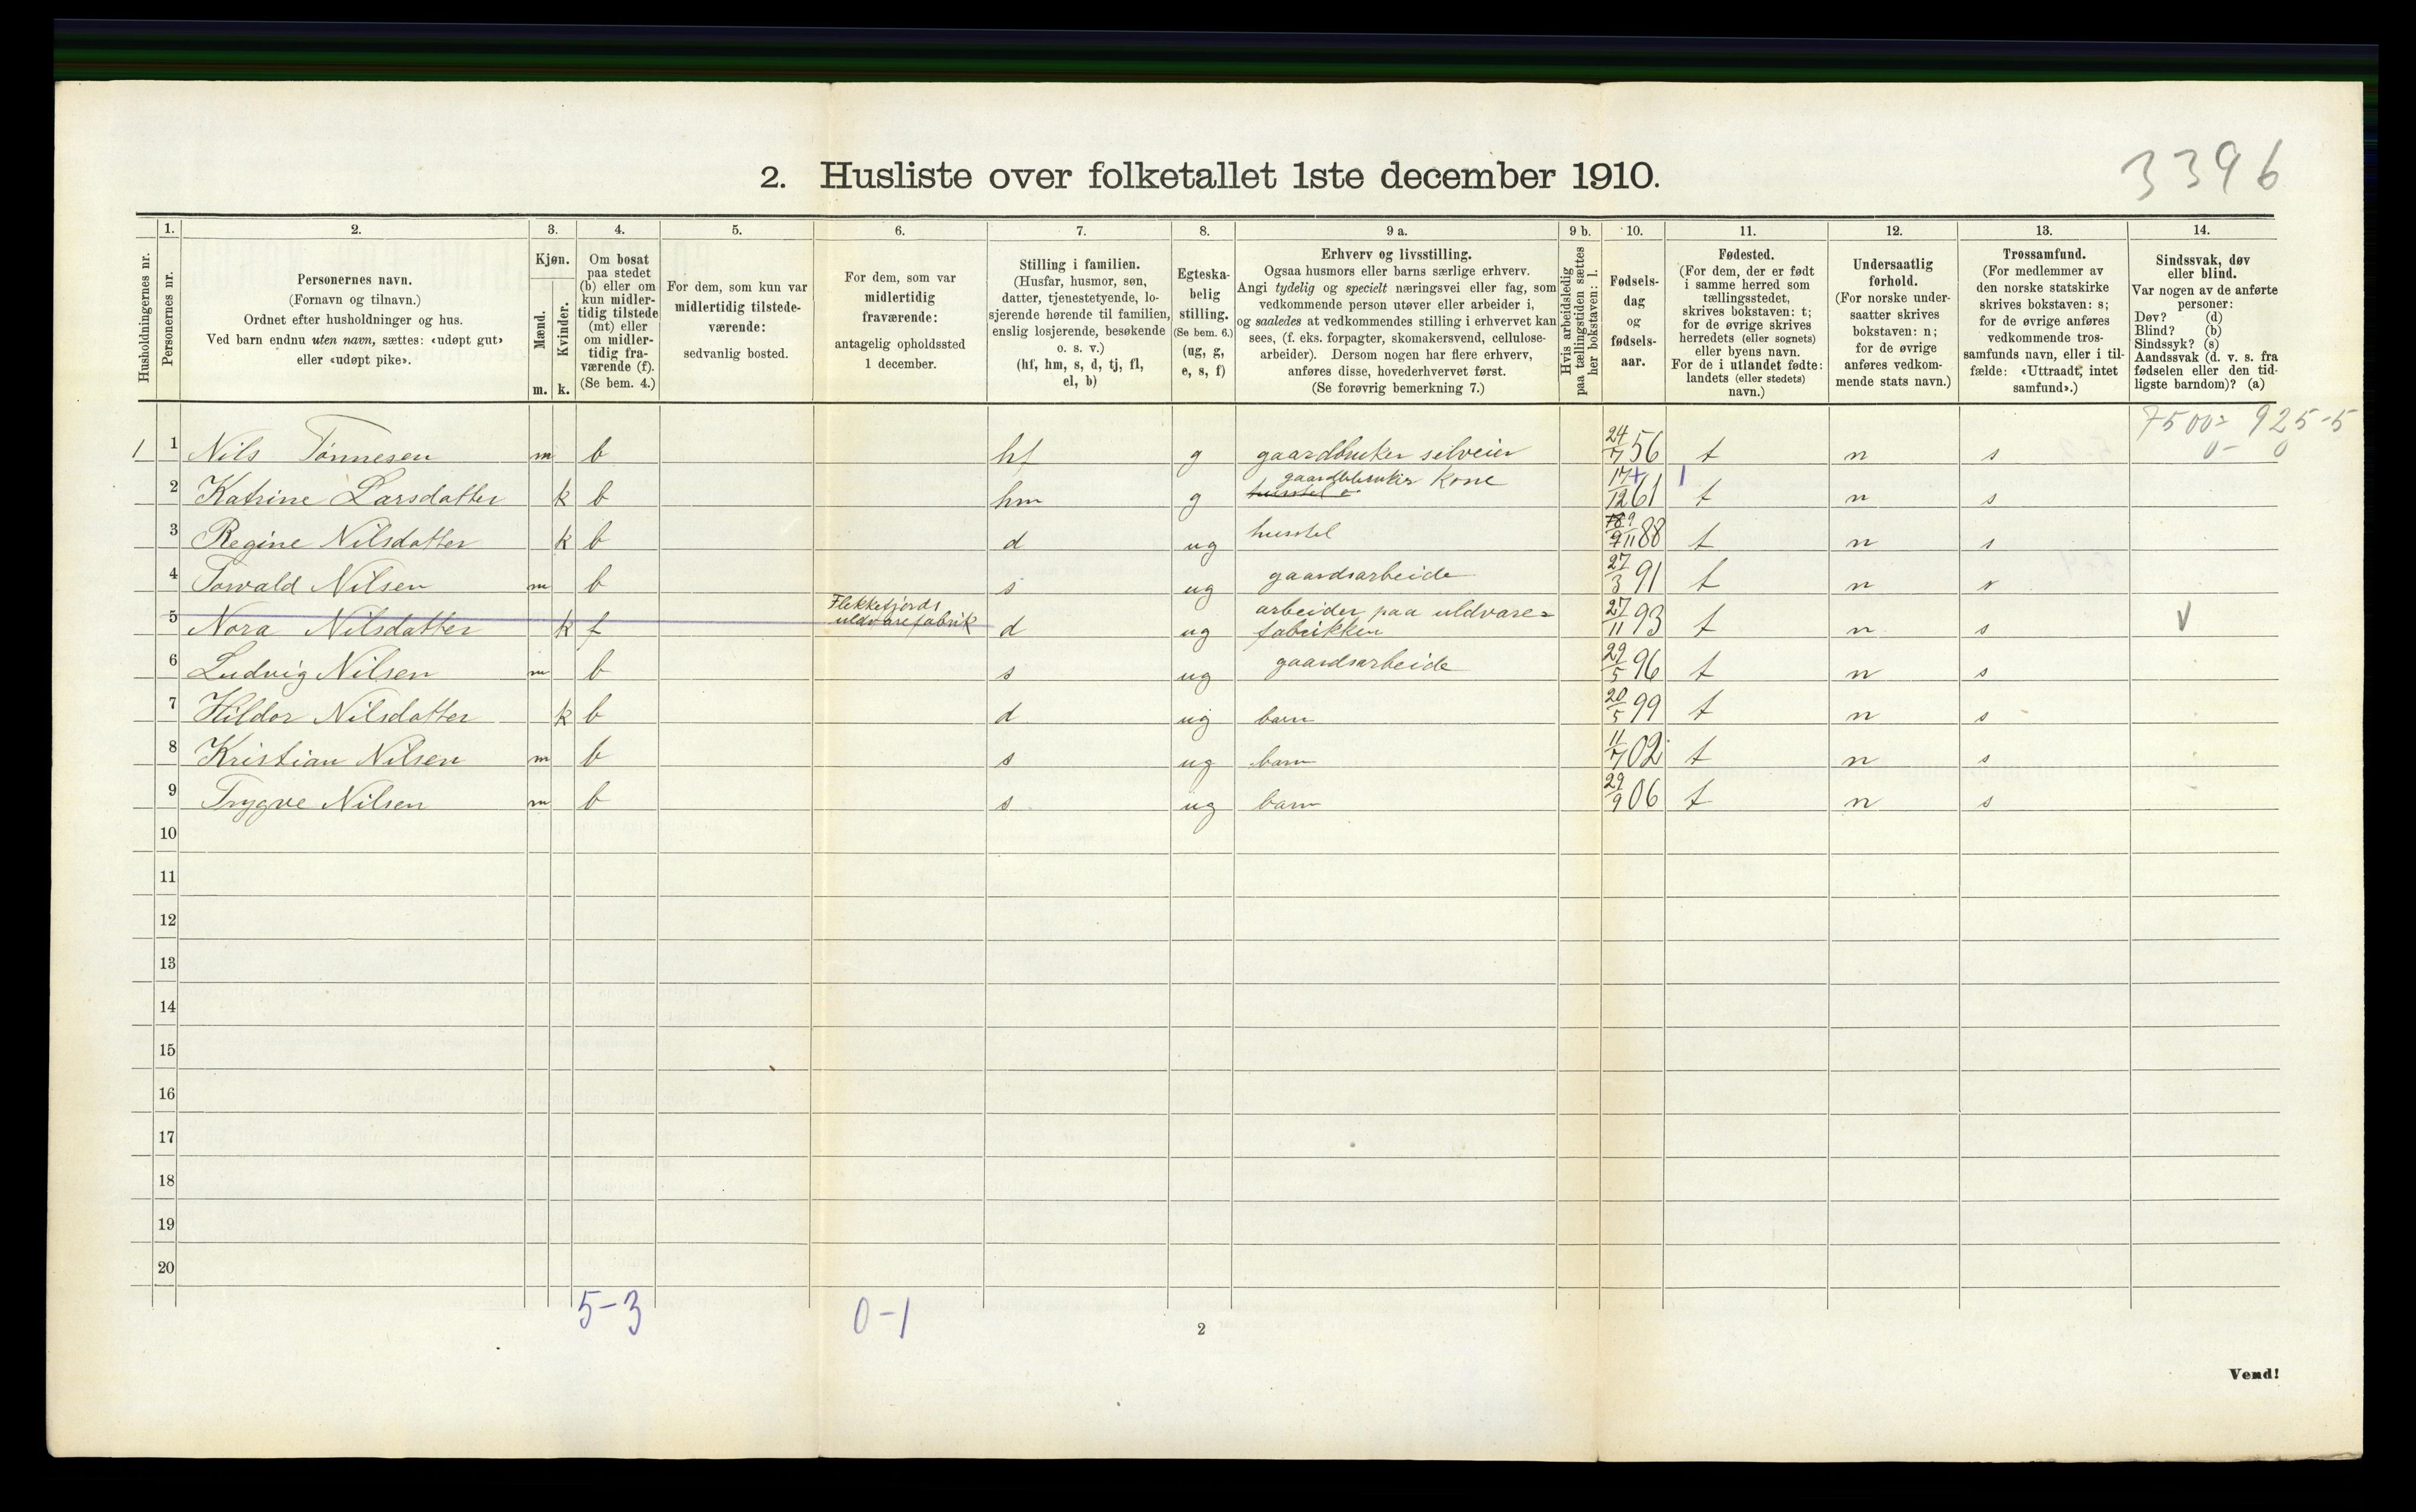 3396
2. Husliste over folketallet 1ste december 1910.
Husholdningernes nr.
1.
Personernes nr.
2.
Personernes navn.
(Fornavn og tilnavn.)
Ordnet efter husholdninger og hus.
Ved barn endnu uten navn, sættes: «udøpt gut»
eller «udøpt pike».
3.
Kjøn.
Mænd.
m.
Kvinder.
k.
4.
Om bosat
paa stedet
(b) eller om
kun midler-
tidig tilstede
(mt) eller
om midler-
tidig fra-
værende (f).
(Se bem. 4.)
5.
For dem, som kun var
midlertidig tilstede-
værende:
sedvanlig bosted.
6.
For dem, som var
midlertidig
fraværende:
antagelig opholdssted
1 december.
7.
Stilling i familien.
(Husfar, husmor, søn,
datter, tjenestetyende, lo-
sjerende hørende til familien,
enslig losjerende, besøkende
o. s. v.)
(hf, hm, s, d, tj, fl,
el, b)
8.
Egteska-
belig
stilling.
(Se bem. 6.)
(ug, g,
e, s, f)
9 a.
Erhverv og livsstilling.
Ogsaa husmors eller barns særlige erhverv.
Angi tydelig og specielt næringsvei eller fag, som
vedkommende person utøver eller arbeider i,
og saaledes at vedkommendes stilling i erhvervet kan
sees, (f. eks. forpagter, skomakersvend, cellulose-
arbeider). Dersom nogen har flere erhverv,
anføres disse, hovederhvervet først.
(Se forøvrig bemerkning 7.)
9 b.
Hvis arbeidsledig
paa tællingstiden sættes
her bokstaven: l.
10.
Fødsels-
dag
og
fødsels-
aar.
11.
Fødested.
(For dem, der er født
i samme herred som
tællingsstedet,
skrives bokstaven: t;
for de øvrige skrives
herredets (eller sognets)
eller byens navn.
For de i utlandet fødte:
landets (eller stedets)
navn.)
12.
Undersaatlig
forhold.
(For norske under-
saatter skrives
bokstaven: n;
for de øvrige
anføres vedkom-
mende stats navn.)
13.
Trossamfund.
(For medlemmer av
den norske statskirke
skrives bokstaven: s;
for de øvrige anføres
vedkommende tros-
samfunds navn, eller i til-
fælde: «Uttraadt, intet
samfund».)
14.
Sindssvak, døv
eller blind.
Var nogen av de anførte
personer:
Døv? (d)
Blind? (b)
Sindssyk? (s)
Aandssvak (d. v. s. fra
fødselen eller den tid-
ligste barndom)? (a)
7500= 925-5
0- 0
1 1 Nils Tønnesen m b hf g gaardbruker selveier 24/7 56 t n s
2 Katrine Larsdatter k b hm g husstel gaardbbruker kone 17/12 61 t n s
3 Regine Nilsdatter k b d ug husstel 9/11 88 t n s
4 Torvald Nilsen m b s ug gaardsarbeide 27/3 91 t n s
5 Nora Nilsdatter k f Flekkefjords uldvarefabrik d ug arbeider paa uldvare= fabrikken 27/11 93 t n s V
6 Ludvig Nilsen m b s ug gaardsarbeide 29/5 96 t n s
7 Hildor Nilsdatter k b d ug barn 20/5 99 t n s
8 Kristian Nilsen m b s ug barn 11/7 02 t n s
9 Trygve Nilsen m b s ug barn 29/9 06 t n s
10
11
12
13
14
15
16
17
18
19
20
5-3 0-1
2
Vend!